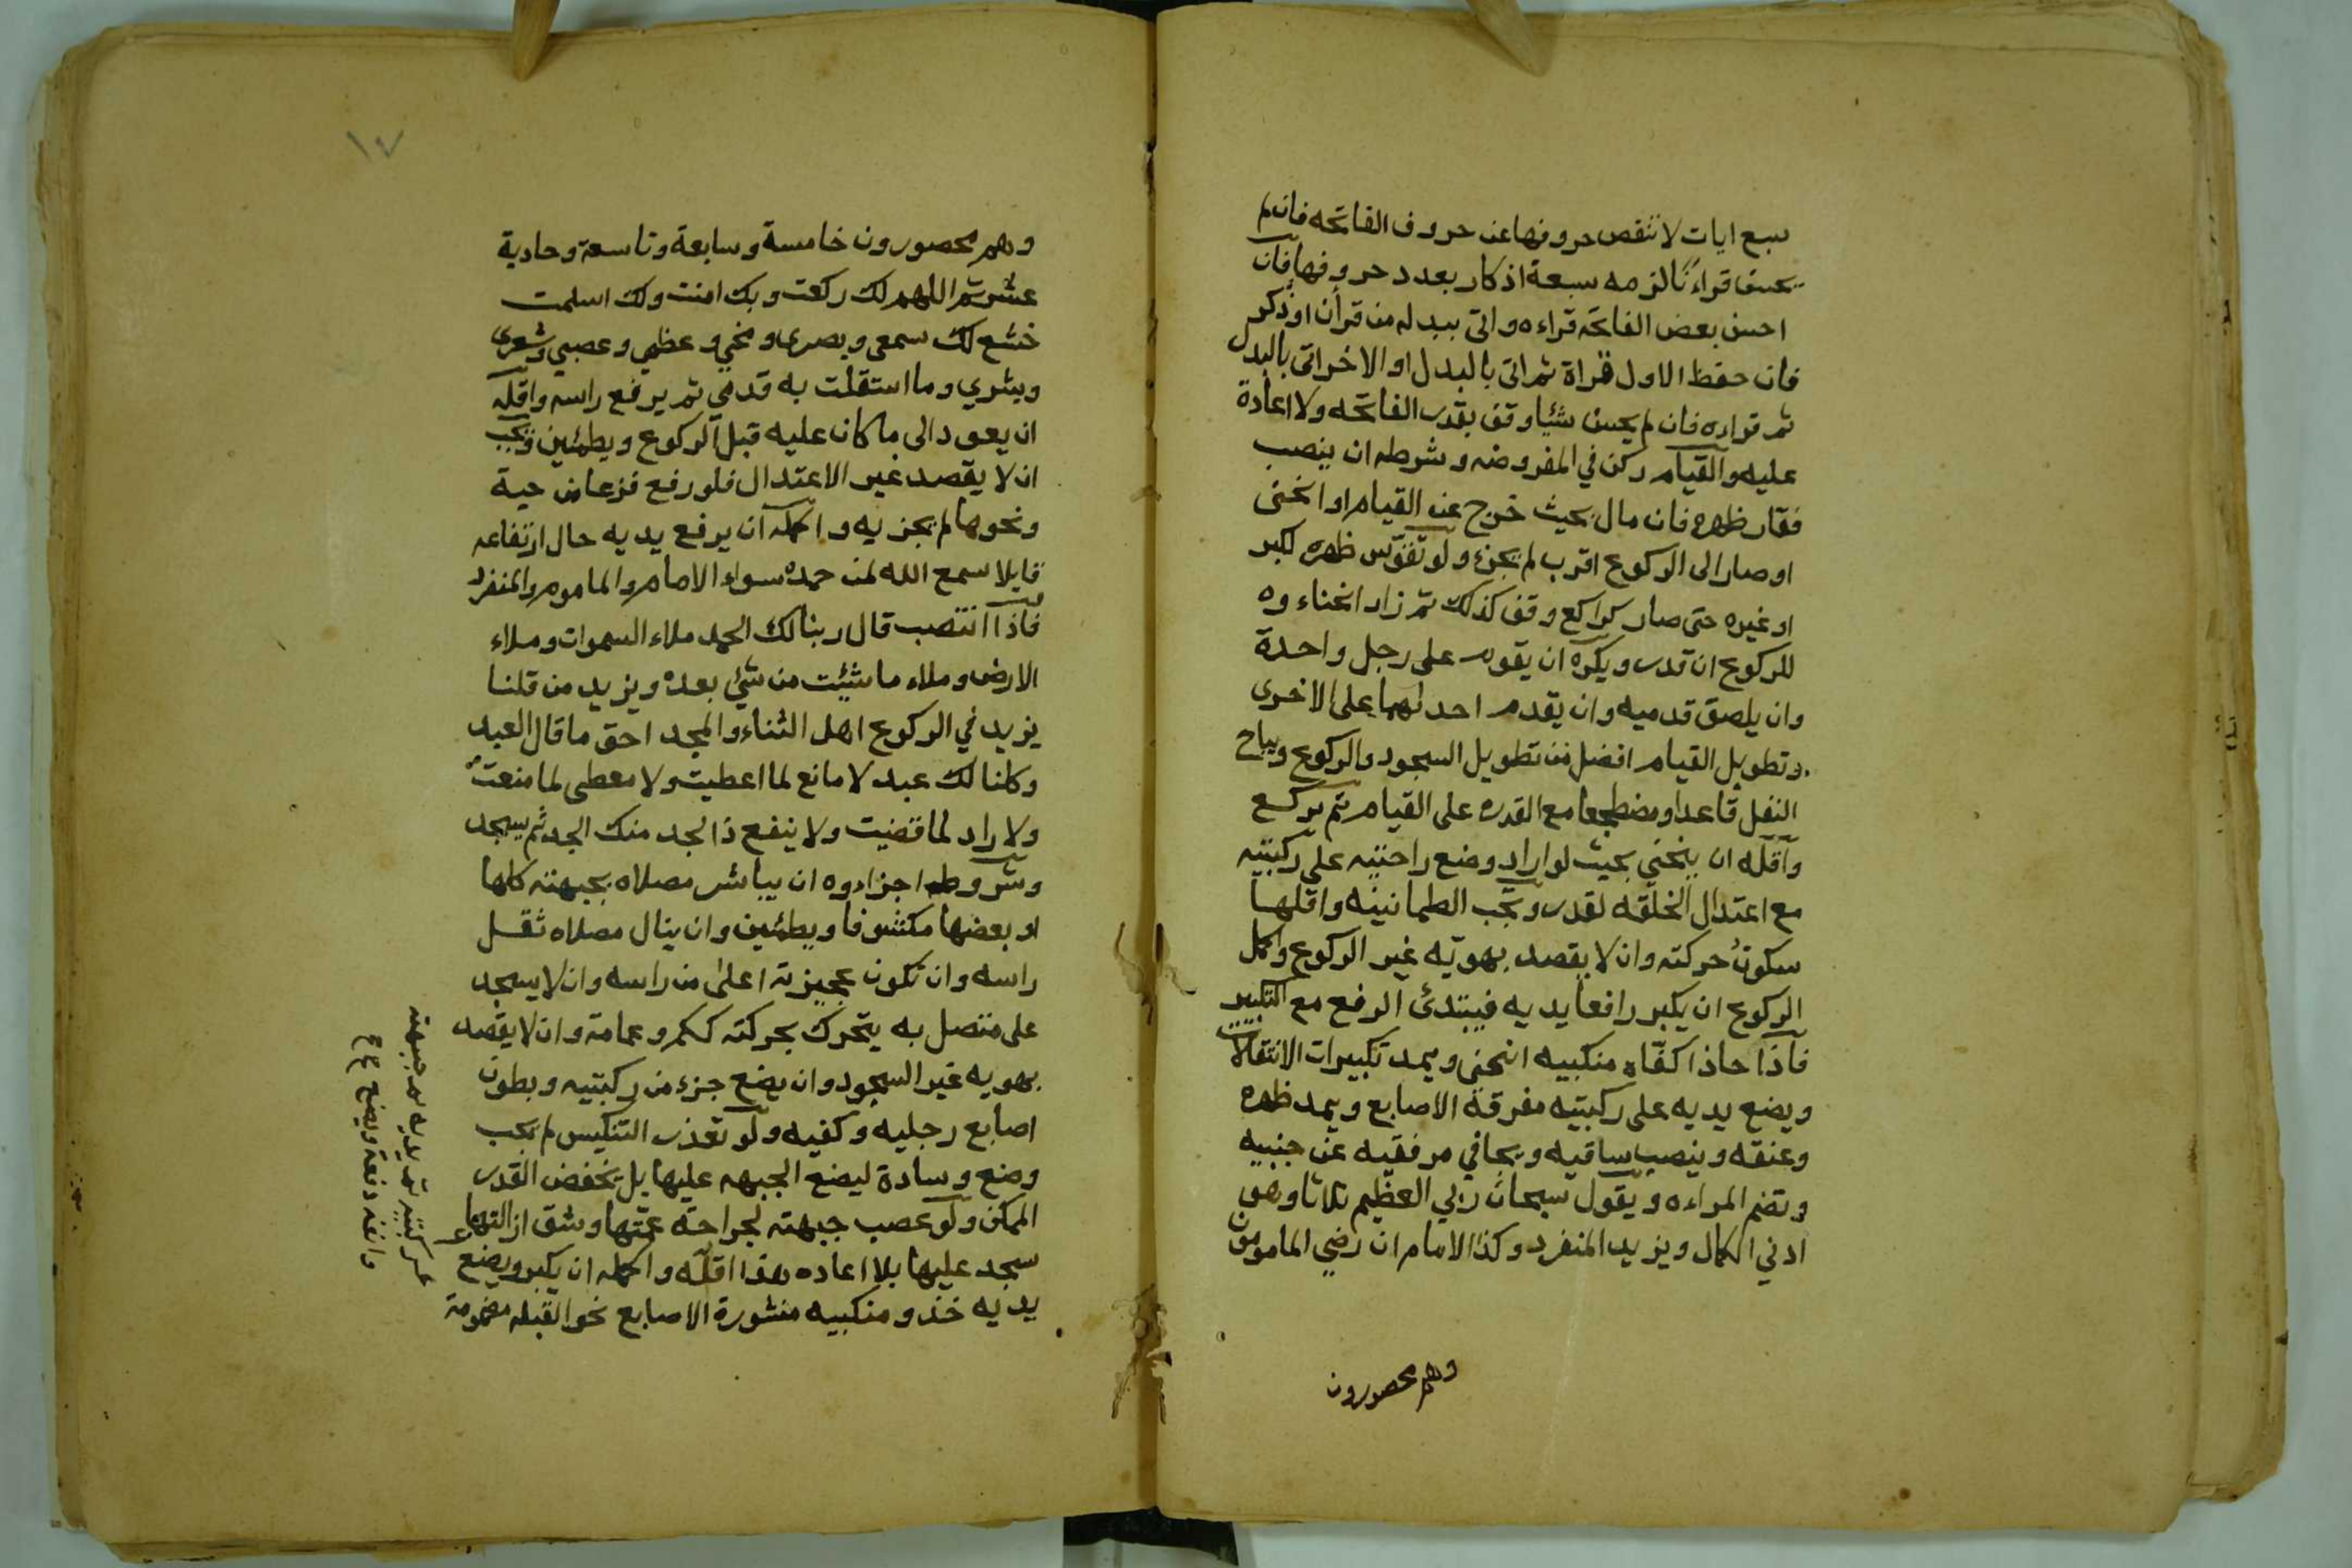 سبع ايات لا تنقص حروفها عن حروف الفاتحه فان لم
يحسن قراءنًا لزمه سبعة اذكار بعدد حروفها فان
احسن بعض الفاتحه قراءه واتى ببدله من قرأن او ذكر
فان حفظ الاول قراة ثم اتى بالبدل او الاخر اتى بالبدل
ثم قراءه فان لم يحسن شئيا وقف بقدر الفاتحه ولا اعادة
عليه والقيام ركن في المفروضه وشرطه ان ينصب
فقار ظهره فان مال بحيث خرج عن القيام او انحنى
او صار الى الركوع اقرب لم يجزء ولو تقوّس ظهره لكبر
او غيره حتى صار كراكع وقف كذلك ثم زاد انحناءوه
للركوع ان قدر ويكره ان يقوم على رجل واحدة
وان يلصق قدميه وان يقدم احدلهما على الاخرى
وتطويل القيام افضل من تطويل السجود والركوع ويباح
النفل قاعدا ومضطجعا مع القدره على القيام ثم يركع
واقله ان ينحني بحيث لو اراد وضع راحتيه على ركبتيه
مع اعتدال الخلقه لقدر وتجب الطمانينه واقلها
سكون حركته وان لا يقصد بهويّه غير الركوع واكمل
الركوع ان يكبر رافعا يديه فيبتدئ الرفع مع التكبير
فاذا حاذا كفّاه منكبيه انحنى ويمد تكبيرات الانتقالات
ويضع يديه على ركبتيه مفرقة الاصابع ويمد ظهره
وعنقه وينصب ساقيه ويجافي مرفقيه عن جنبيه
وتضم المراءه ويقول سبحان ربي العظيم ثلاثا وهو
ادني الكمال ويزيد المنفرد وكذا الامام ان رضي المامومون
وهم محصورون
١٧
وهم محصورون خامسة وسابعة وتاسعة وحادية
عشر ثم اللهم لك ركعت وبك امنت ولك اسلمت
خشع لك سمعي وبصرى ومخي وعظمي وعصبي وشعرى
وبشري وما استقلت به قدمي ثم يرفع راسه واقله
ان يعود الى ما كان عليه قبل الركوع ويطمئين ويجب
ان لا يقصد غير الاعتدال فلو رفع فزعا من حية
ونحوها لم يجزيه واكمله ان يرفع يديه حال ارتفاعه
قايلا سمع الله لمن حمده سواء الامام والماموم والمنفرد
فاذا انتصب قال ربنا لك الحمد ملاء السموات وملاء
الارض وملاء ما شيئت من شئ بعده ويزيد من قلنا
يزيد في الركوع اهل الثناء والمجد احق ما قال العبد
وكلنا لك عبد لا مانع لما اعطيت ولا معطى لما منعت
ولا راد لما قضيت ولا ينفع ذا الجد منك الجد ثم يسجد
وشروط اجزاءوه ان يباشر مصلاه بجبهته كلها
او بعضها مكشوفا ويطمئين وان ينال مصلاه ثقل
راسه وان تكون عجيزته اعلى من راسه وان لا يسجد
على متصل به يتحرك بحركته ككم وعمامة وان لا يقصد
بهويه غير السجود وان يضع جزء من ركبتيه وبطون
اصابع رجليه وكفيه ولو تعذر التنكيس لم يجب
وضع وسادة ليضع الجبهه عليها بل يخفض القدر
الممكن ولو عصب جبهته لجراحة عمّتها وشق ازالتها
سجد عليها بلا اعاده هذا اقلّه واكمله ان يكبر ويضع
يديه حذو منكبيه منشورة الاصابع نحو القبله مضمومة
ركبتيه ثم يديه ثم جبهته
وانفه دفعة ويضع